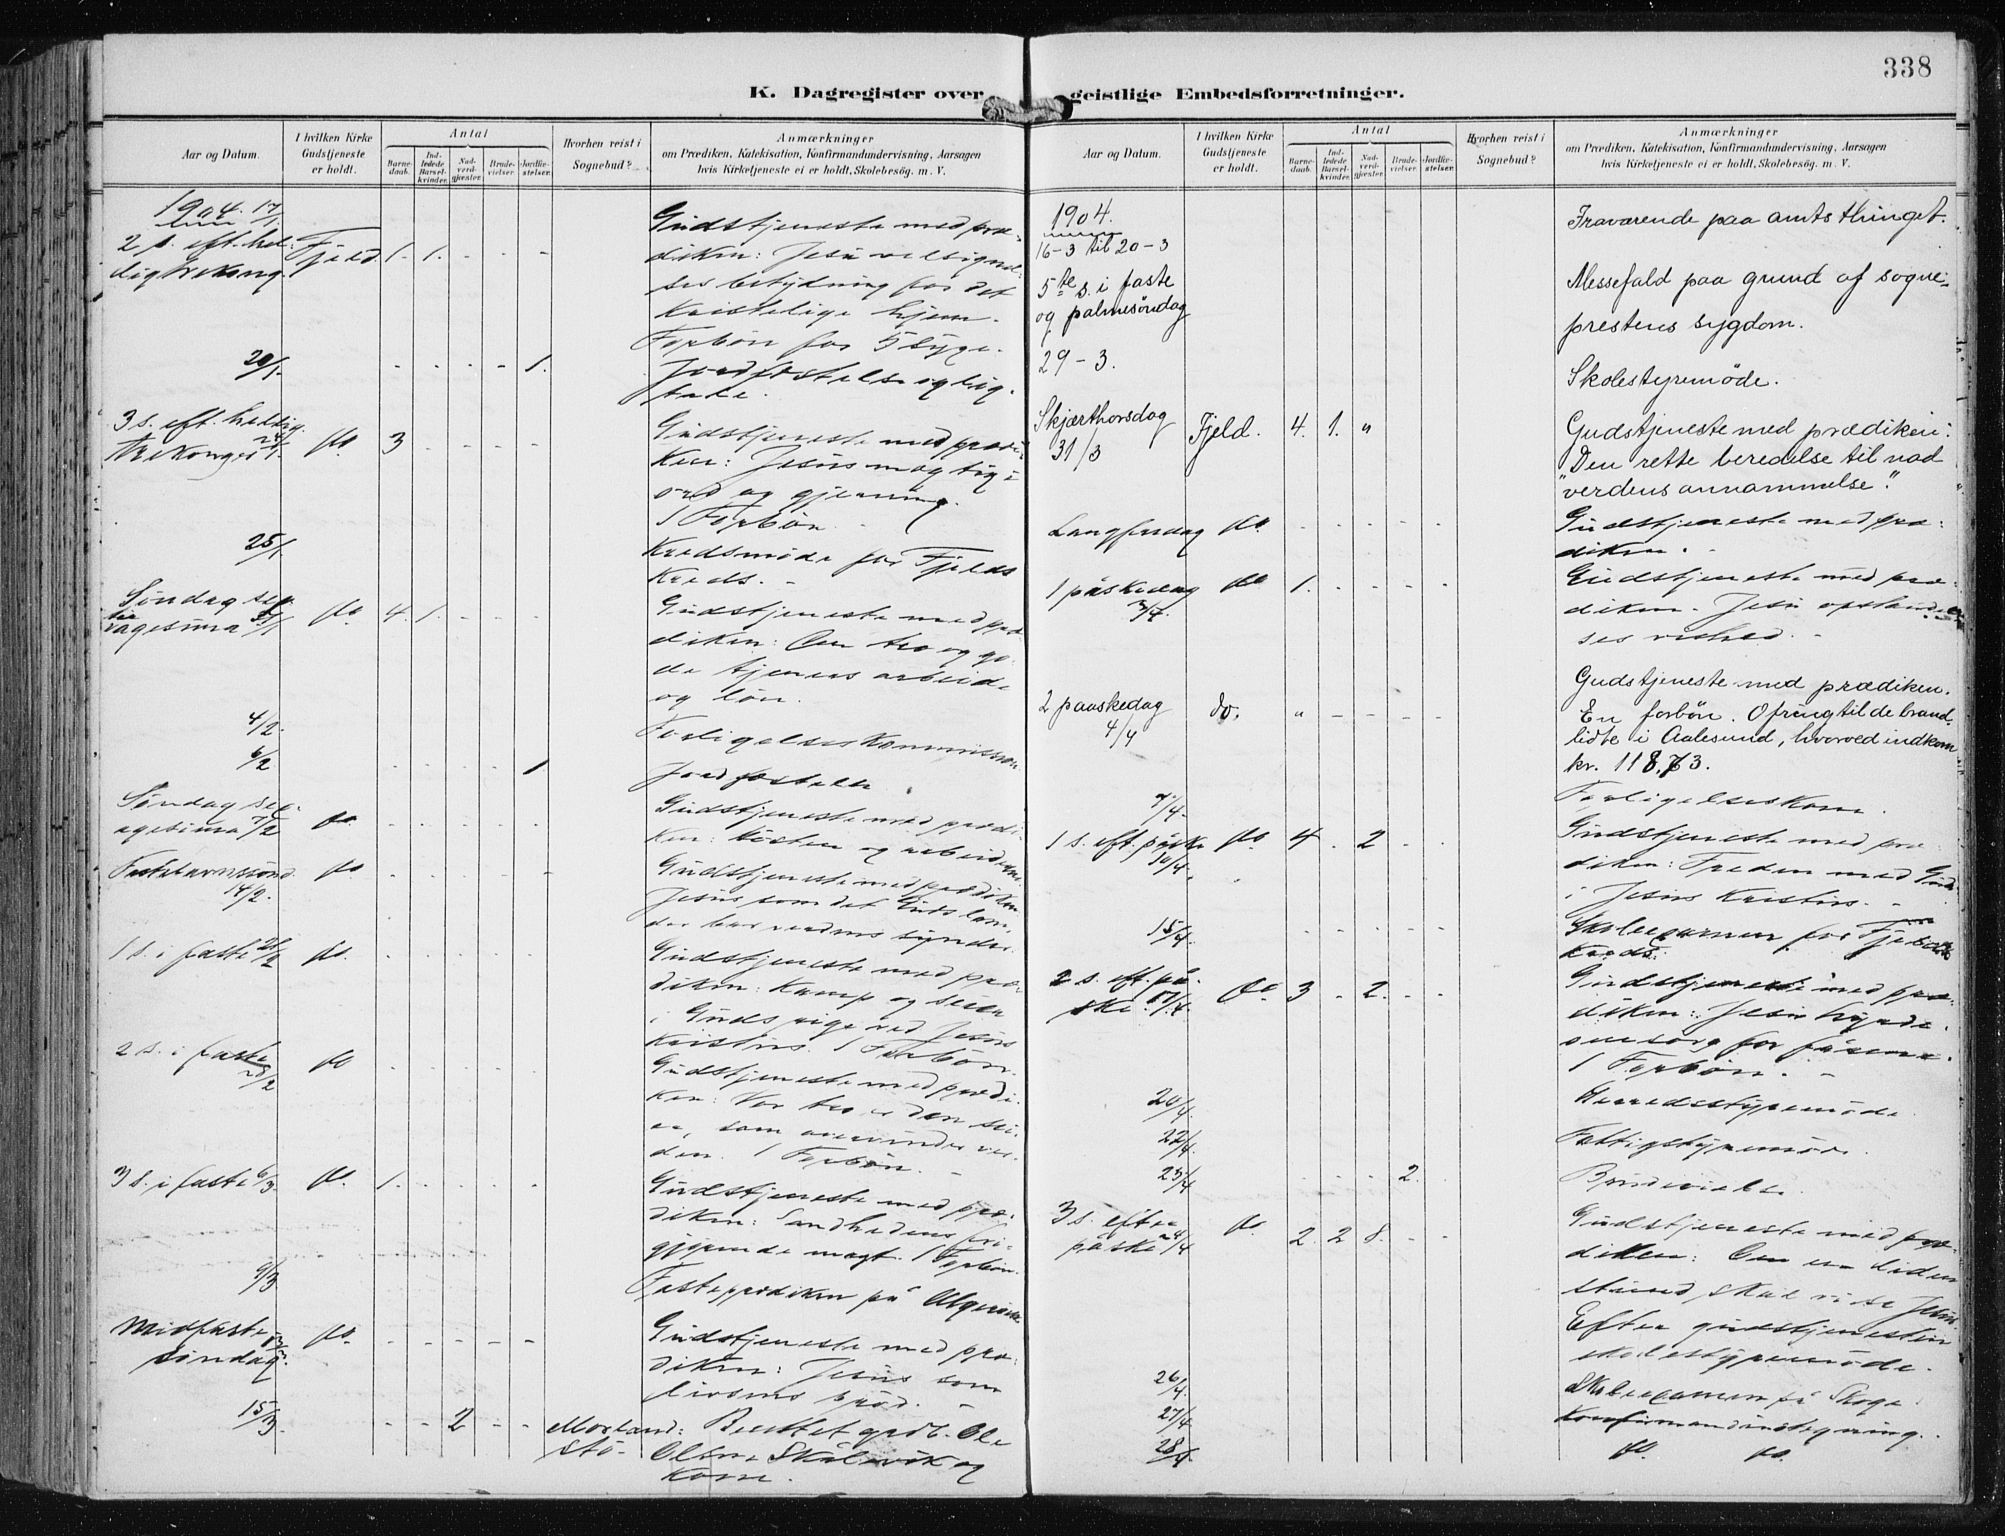 338
K. Dagregister over geistlige Embedsforretninger.
Aar og Datum.
I hvilken Kirke Gudstjeneste er holdt.
Antal
Barne-daab.
Ind-ledede Barsel-kvinder.
Nad-verd-gjæster.
Brude-vielser.
Jordfæ-stelser.
Hvorhen reist i Sognebud?
Anmærkninger
om Prædiken, Katekisation, Konfirmandundervisning, Aarsagen
hvis Kirketjeneste ei er holdt, Skolebesøg. m. V.
1904. 17/1.
2 s. eft. hel- Fjeld 1. 1. - - - Gudstjeneste med præ-
ligtrekong. diken: Jesu velsignel-
ses betydning for det
kristelige hjem.
Forbøn for 5 syge.
20/1. - - - - 1. Jordfæstelse og lig-
tale.
3 s. eft. hellig- do 3 - - - - Gudstjeneste med prædi-
trekonger 24/1. ken: Jesus mægtig i
ord og gjerning.
1 Forbøn.
25/1 Kredsmøde for Fjelds
Kreds. -
Søndag sep- do 4. 1. - - - Gudstjeneste med præ-
tuagesima 31/1 diken: Om tro og go-
de tjeneres arbeide
og løn.
4/2. Forligelseskommission
6/2 - - - - 1 Jordfæstelse
Søndag sex- do. - - - - - Gudstjeneste med prædi-
agesima 7/2 ken: høsten og arbeiderne.
Fastelavnssønd. do - - - - - Gudstjeneste med prædiken.
14/2. Jesus som det Guds lam,
der bar verdens synder.
1 s. i faste 21/2 do. - - - - - Gudstjeneste med præ-
diken: Kamp og seier
i Guds rige ved Jesus
Kristus. 1 Forbøn.
2 s. i faste do - - - - - Gudstjeneste med prædi-
28/2 ken: Vor tro er den sei-
er, som overvinder ver-
den. 1 Forbøn. -
3 s. i faste 6/3. do. 1. - - - - Gudstjeneste med præ-
diken: Sandhedens fri-
gjørende magt. 1 Forbøn.
9/3 Fasteprædiken på Algerøen
Midfaste- do. - - - - - Gudstjeneste med præ-
søndag 13/3. diken: Jesus som
livsens brød. -
15/3. - - 2 - - Morland: Berettet grdb. Ole
Stø- Olsen Skålevik og
kone.
Aar og Datum.
I hvilken Kirke Gudstjeneste er holdt.
Antal
Barne-daab.
Ind-ledede Barsel-kvinder.
Nad-verd-gjæster.
Brude-vielser.
Jordfæ-stelser.
Hvorhen reist i Sognebud?
Anmærkninger
om Prædiken, Katekisation, Konfirmandundervisning, Aarsagen
hvis Kirketjeneste ei er holdt, Skolebesøg. m. V.
1904. Fraværende paa amtsthinget.
16-3 til 20-3
5te s. i faste Messefald paa grund af sogne-
og palmesøndag prestens sygdom.
29-3. Skolestyremøde.
Skjærthorsdag Fjeld. 4. 1. " Gudstjeneste med prædiken:
31/3 "Den rette beredelse til nad
verdens annammelse."
Langfredag do. - - - - - Gudstjeneste med præ-
diken. -
1 påskedag do 1. - - - - Gudstjeneste med præ-
3/4. diken. Jesu opstandel-
ses vished. -
Gudstjeneste med prædiken.
2 paaskedag do. " - - - - En forbøn. Ofring til de brand-
4/4 lidte i Aalesund, hvorved indkom
kr. 118,73.
7/4. Forligelseskom.
1 s. eft. påske do 4 - 2 - - Gudstjeneste med præ-
10/4. diken: Freden med Gud
i Jesus Kristus. -
15/4. - - - - - Skoleexamen for Fjelds
Kreds.
2 s. eft. på- do. 3 - 2. - - Gudstjeneste med præ-
ske. 17/4. diken: Jesu hyrde-
omsorg for fårene.
1 Forbøn. -
20/4. Herredsstyremøde
22/4. Fattigstyremøde.
23/4 - - - 2. Brudevielse.
3 s. efter do. 2. 2 8. - - Gudstjeneste med præ-
påske 24/4 diken: Om en liden
stund skal vi se Jesus.
Efter gudstjenesten
skolestyremøde.
26/4. Skoleexamen på Skoge
27/4. Konfirmandindtegning.
28/4. do. do.